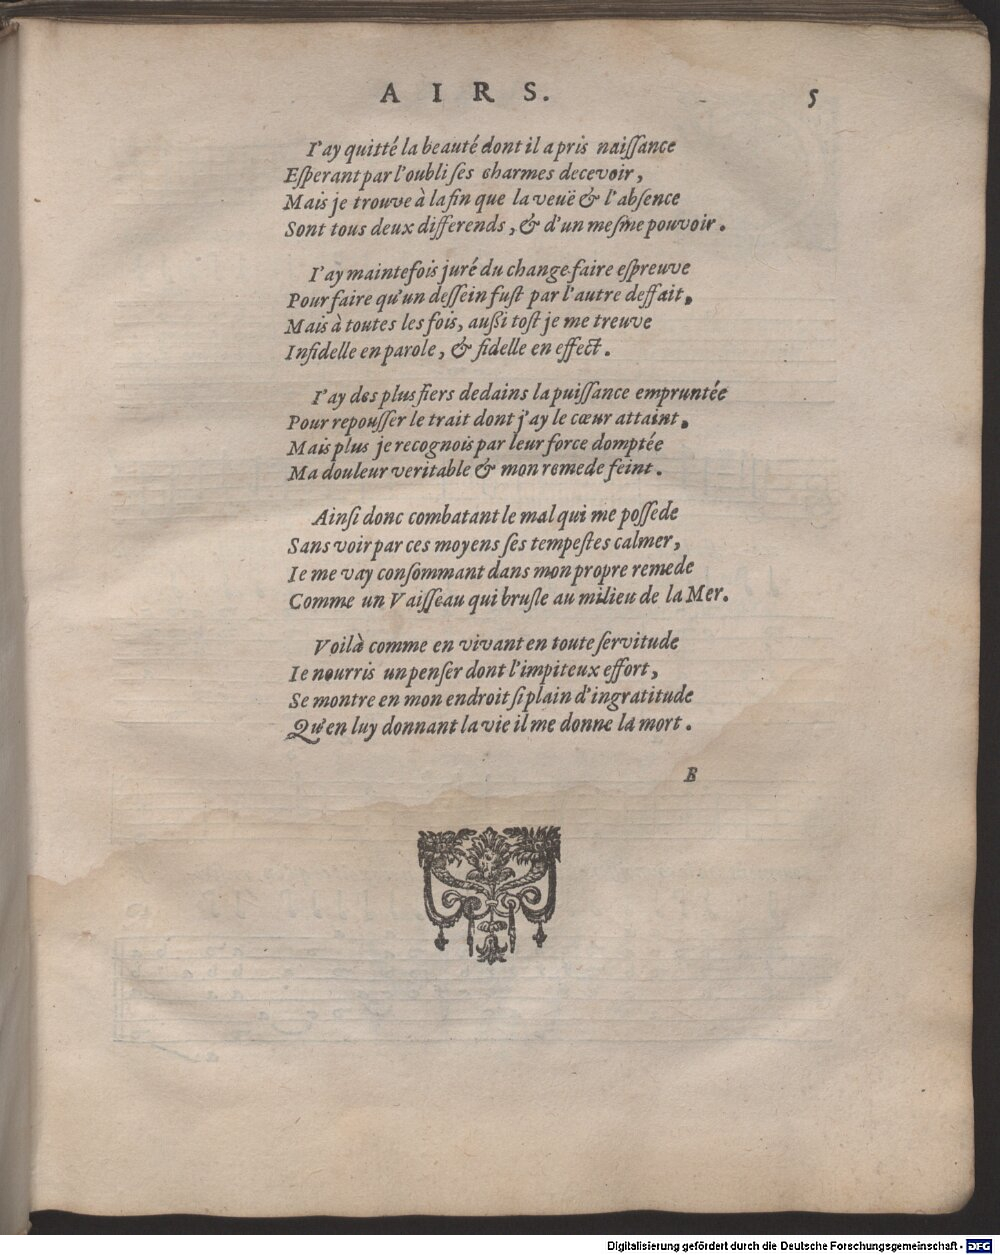 AIRS. 5
I'ay quitté la beauté dont il a pris naiſſance
Eſperant par l'oubli ſes charmes decevoir,
Mais je trouve à la fin que la veuë & l'abſence
Sont tous deux differends, & d'un meſme pouvoir.
I'ay maintefois juré du change faire eſpreuve
Pour faire qu'un deſſein fuſt par l'autre deffait,
Mais à toutes les fois, auſſi toſt je me treuve
Infidelle en parole, & fidelle en effect.
I'ay des plus fiers dedains la puiſſance empruntée
Pour repouſſer le trait dont j'ay le cœur attaint,
Mais plus je recognois par leur force domptée
Ma douleur veritable & mon remede feint.
Ainſi donc combatant le mal qui me poſſede
Sans voir par ces moyens ſes tempeſtes calmer,
Ie me vay conſommant dans mon propre remede
Comme un Vaiſſeau qui bruſle au milieu de la Mer.
Voilà comme en vivant en toute ſervitude
Ie nourris un penſer dont l'impiteux effort,
Se montre en mon endroit ſi plain d'ingratitude
Qu'en luy donnant la vie il me donne la mort.
B
Digitalisierung gefördert durch die Deutsche Forschungsgemeinschaft - DFG